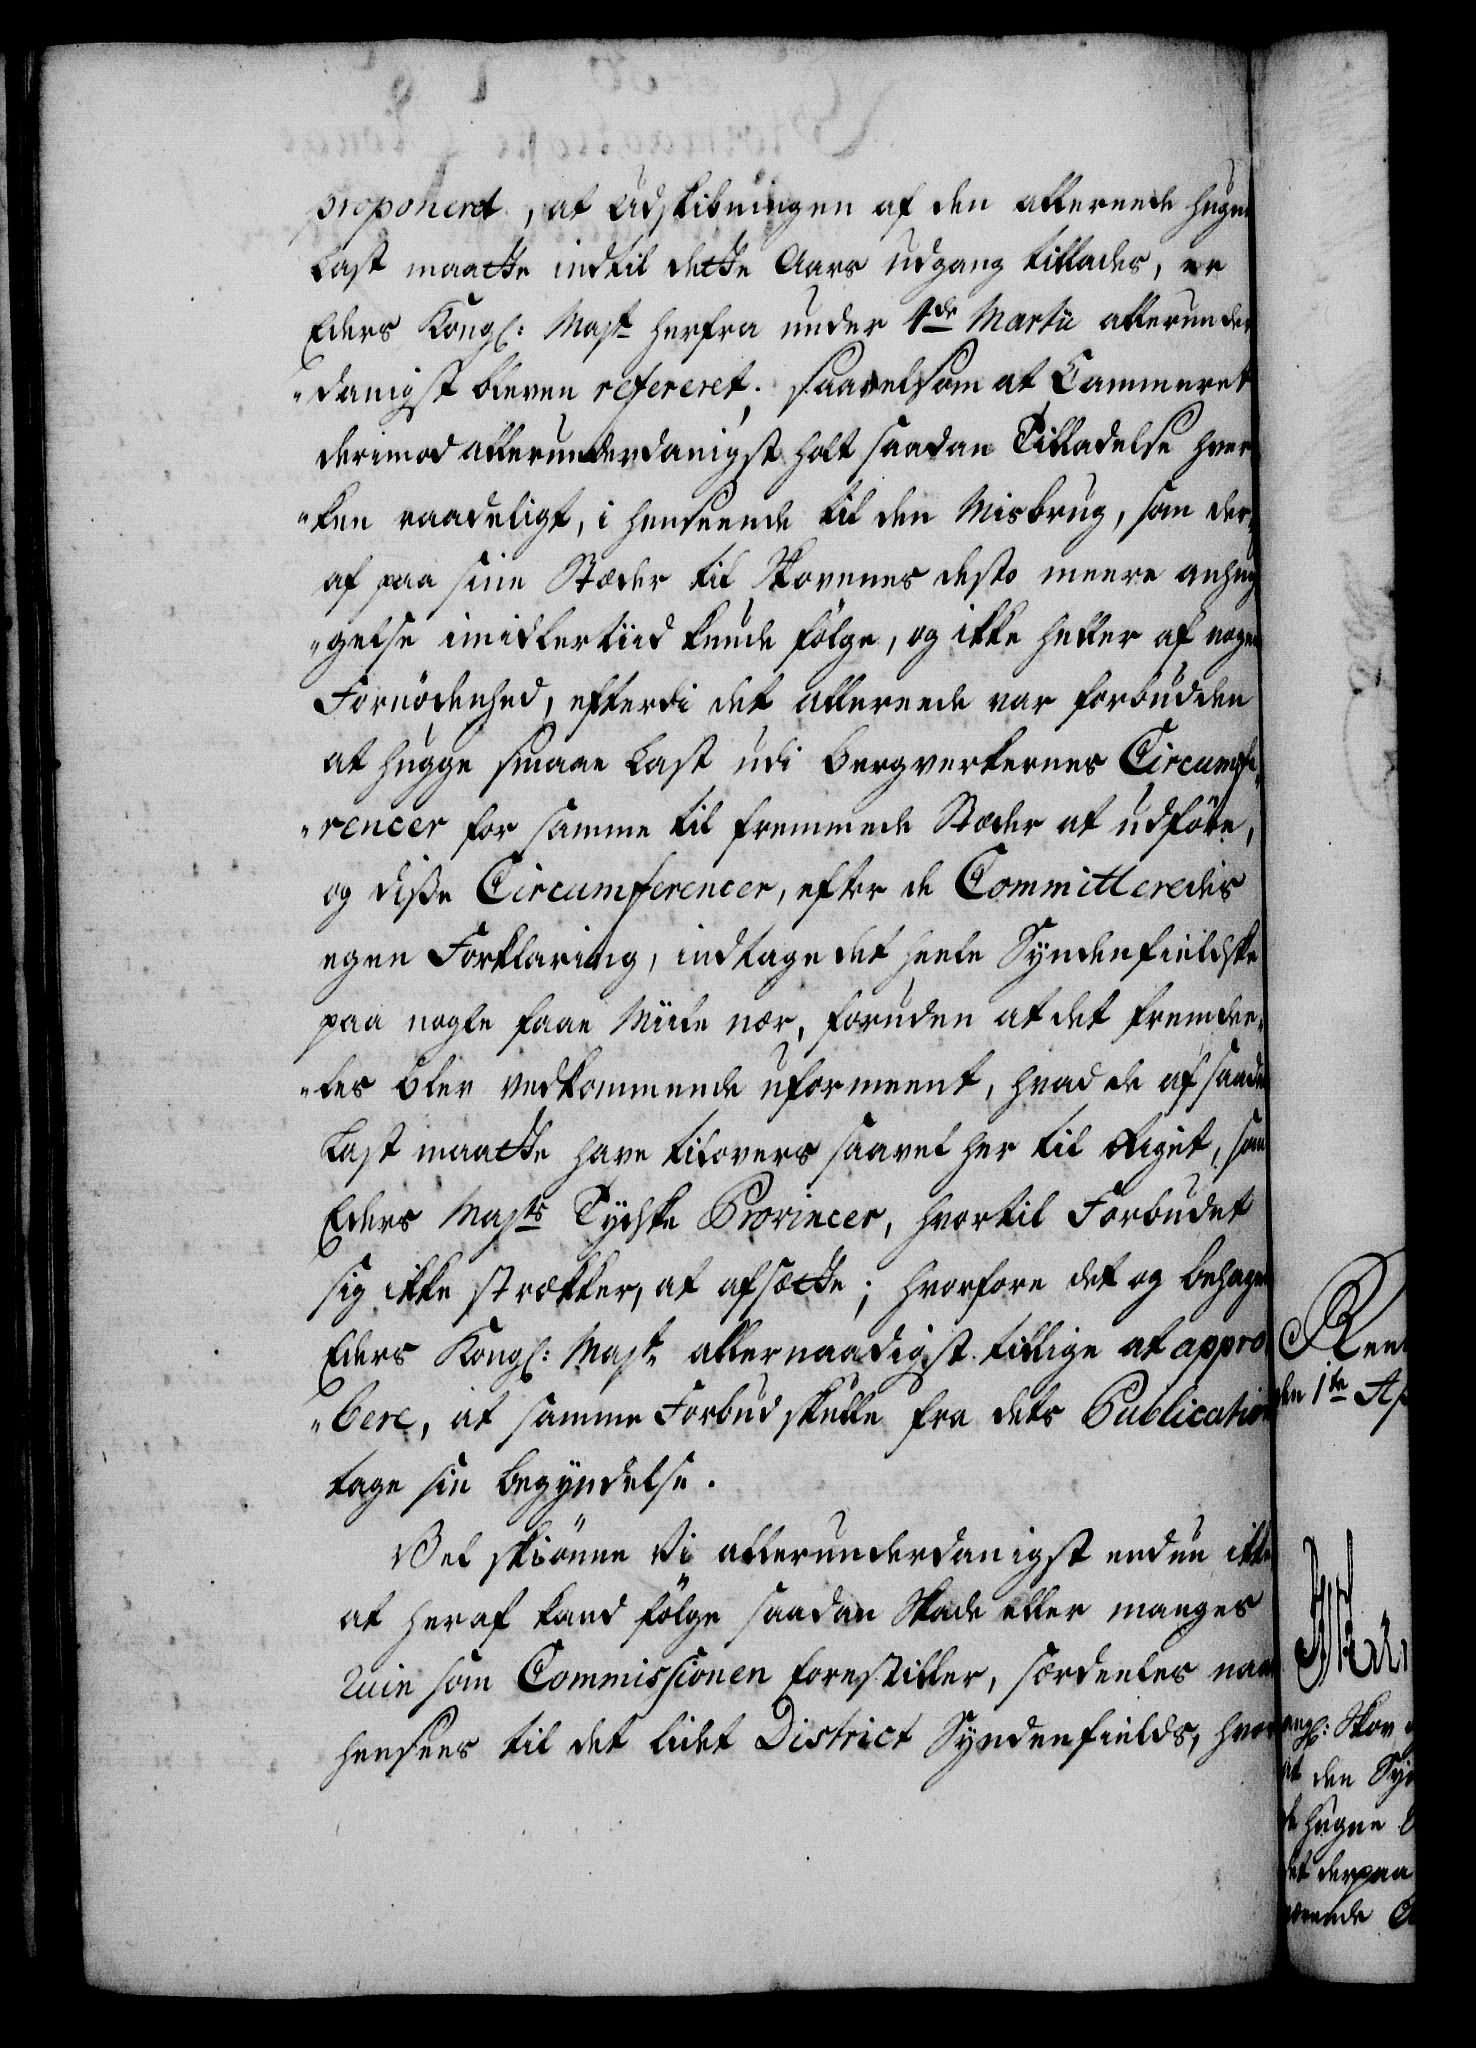 proponeret, at Udskibningen af den allereede hugne
Last maatte indtil dette Aars udgang tillades, er
Eders Kongl: Mayt herfra under 4de Martii allerunder
"danigst bleven refereret; saavelsom at Cammeret
derimod allerunderdanigst holt saadan Tilladelse hver
"ken raadeligt, i henseende til den Misbrug, som der,
af paa sine Stæder til Skovenes desto meere anhug
"gelse imidlertiid kunde følge, og ikke heller af nogen
Fornødenhed, efterdi det allereede var forbudden
at hugge smaae Last udi Bergverkernes Circumfe,
"rencer for samme til fremmede Stæder at udføre,
og disse Circumferencer, efter de Committeredes
egen Forklaring, indtage det heele Syndenfieldske
paa nogle faae Miile nær, foruden at det fremdee,
"les blev vedkommende uformeent, hvad de af saadan
Last maatte have tilovers saavel her til Riget, som
Eders Mayts Tydske Provincer, hvortil Forbudet
sig ikke strækker, at afsætte; hvorfore det og behagede
Eders Kongl: Mayt allernaadigst tillige at appro,
"bere, at samme Forbud skulle fra dets Publication
tage sin begyndelse.
Vel skiønne Vi allerunderdanigst endnu ikke
at heraf kand følge saadan Skade eller manges
Ruin som Commissionen forestiller, særdeeles naar
hensees til det lidet District Syndenfields, hvor
Ren
den 1te Ap
ongl: Skov
at den Syn
de hugne
det derpaa
værende